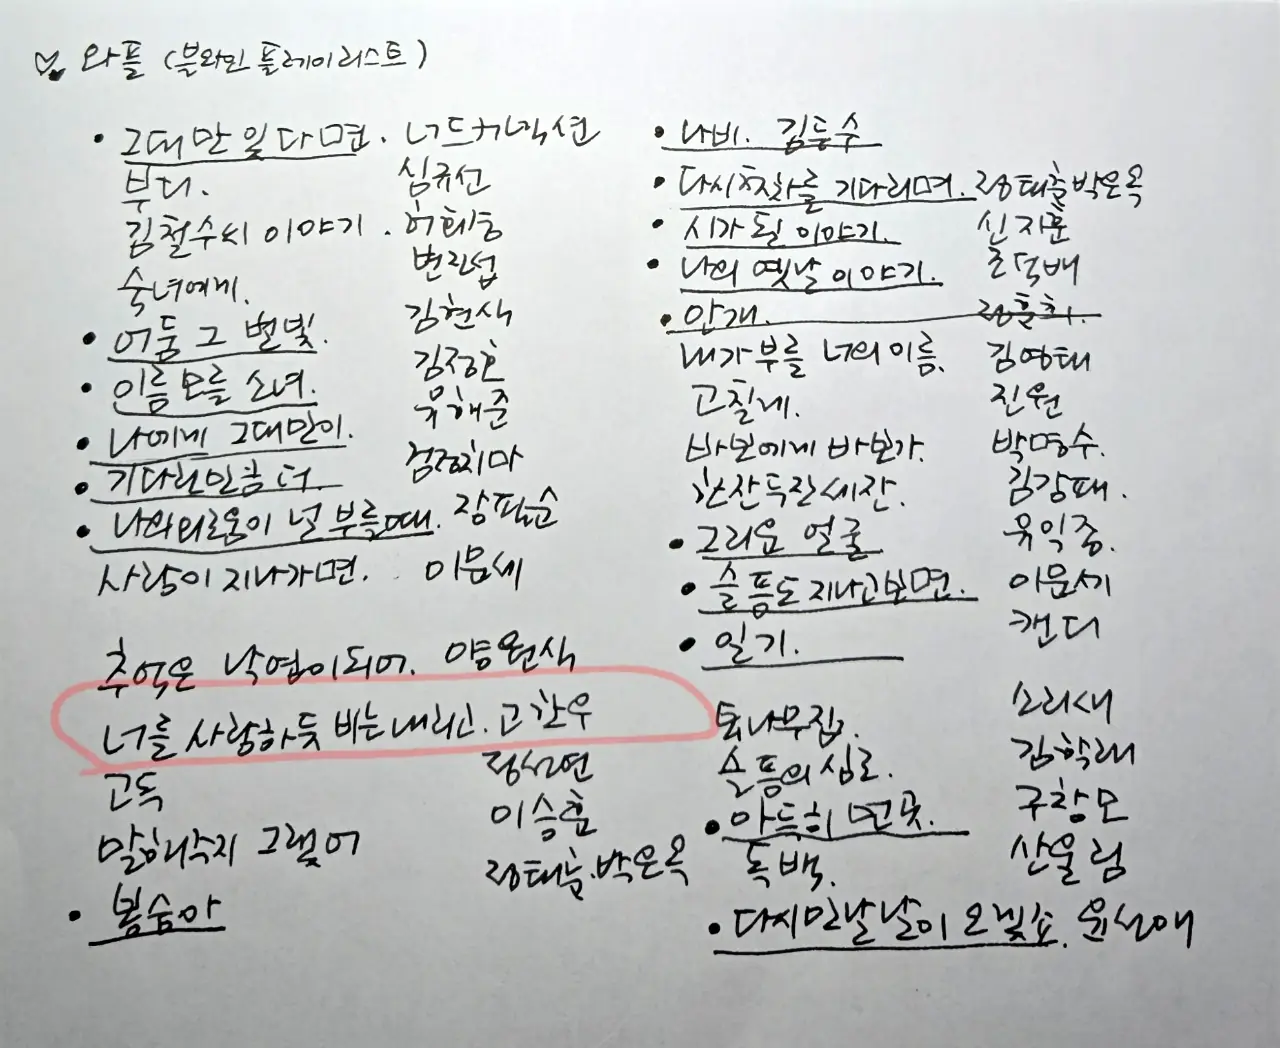 와플 (블와인 플레이리스트)
• 그대만 있다면. 너드커넥션
부디. 심규선
김철수씨 이야기. 허회경
숙녀에게. 변진섭
• 어둠 그 별빛. 김현식
• 이름 모를 소녀. 김정호
• 나에게 그대만이. 유해준
• 기다린만큼 더. 검정치마
• 나의외로움이 널 부를때. 장필순
사랑이 지나가면. 이문세
추억은 낙엽이되어. 양원식
너를 사랑하듯 비는내리고. 고찬우
고독 정선연
말해주지 그랬어 이승훈
• 봉숭아 정태춘.박은옥
• 나비. 김등수
• 다시첫차를 기다리며. 정태춘박은옥
• 시가 될 이야기. 신지훈
• 나의 옛날 이야기. 조덕배
• 안개. 정훈희.
내가 부를 너의 이름. 김영태
고칠게. 진원
바보에게 바보가. 박명수.
한잔두잔세잔. 김강태.
• 그리운 얼굴 유익종.
• 슬픔도 지나고보면. 이문세
• 일기. 캔디
통나무집. 소리새
슬픔의 심로. 김학래
• 아득히 먼곳. 구창모
독백. 산울림
• 다시만날 날이 오겠죠. 윤선애